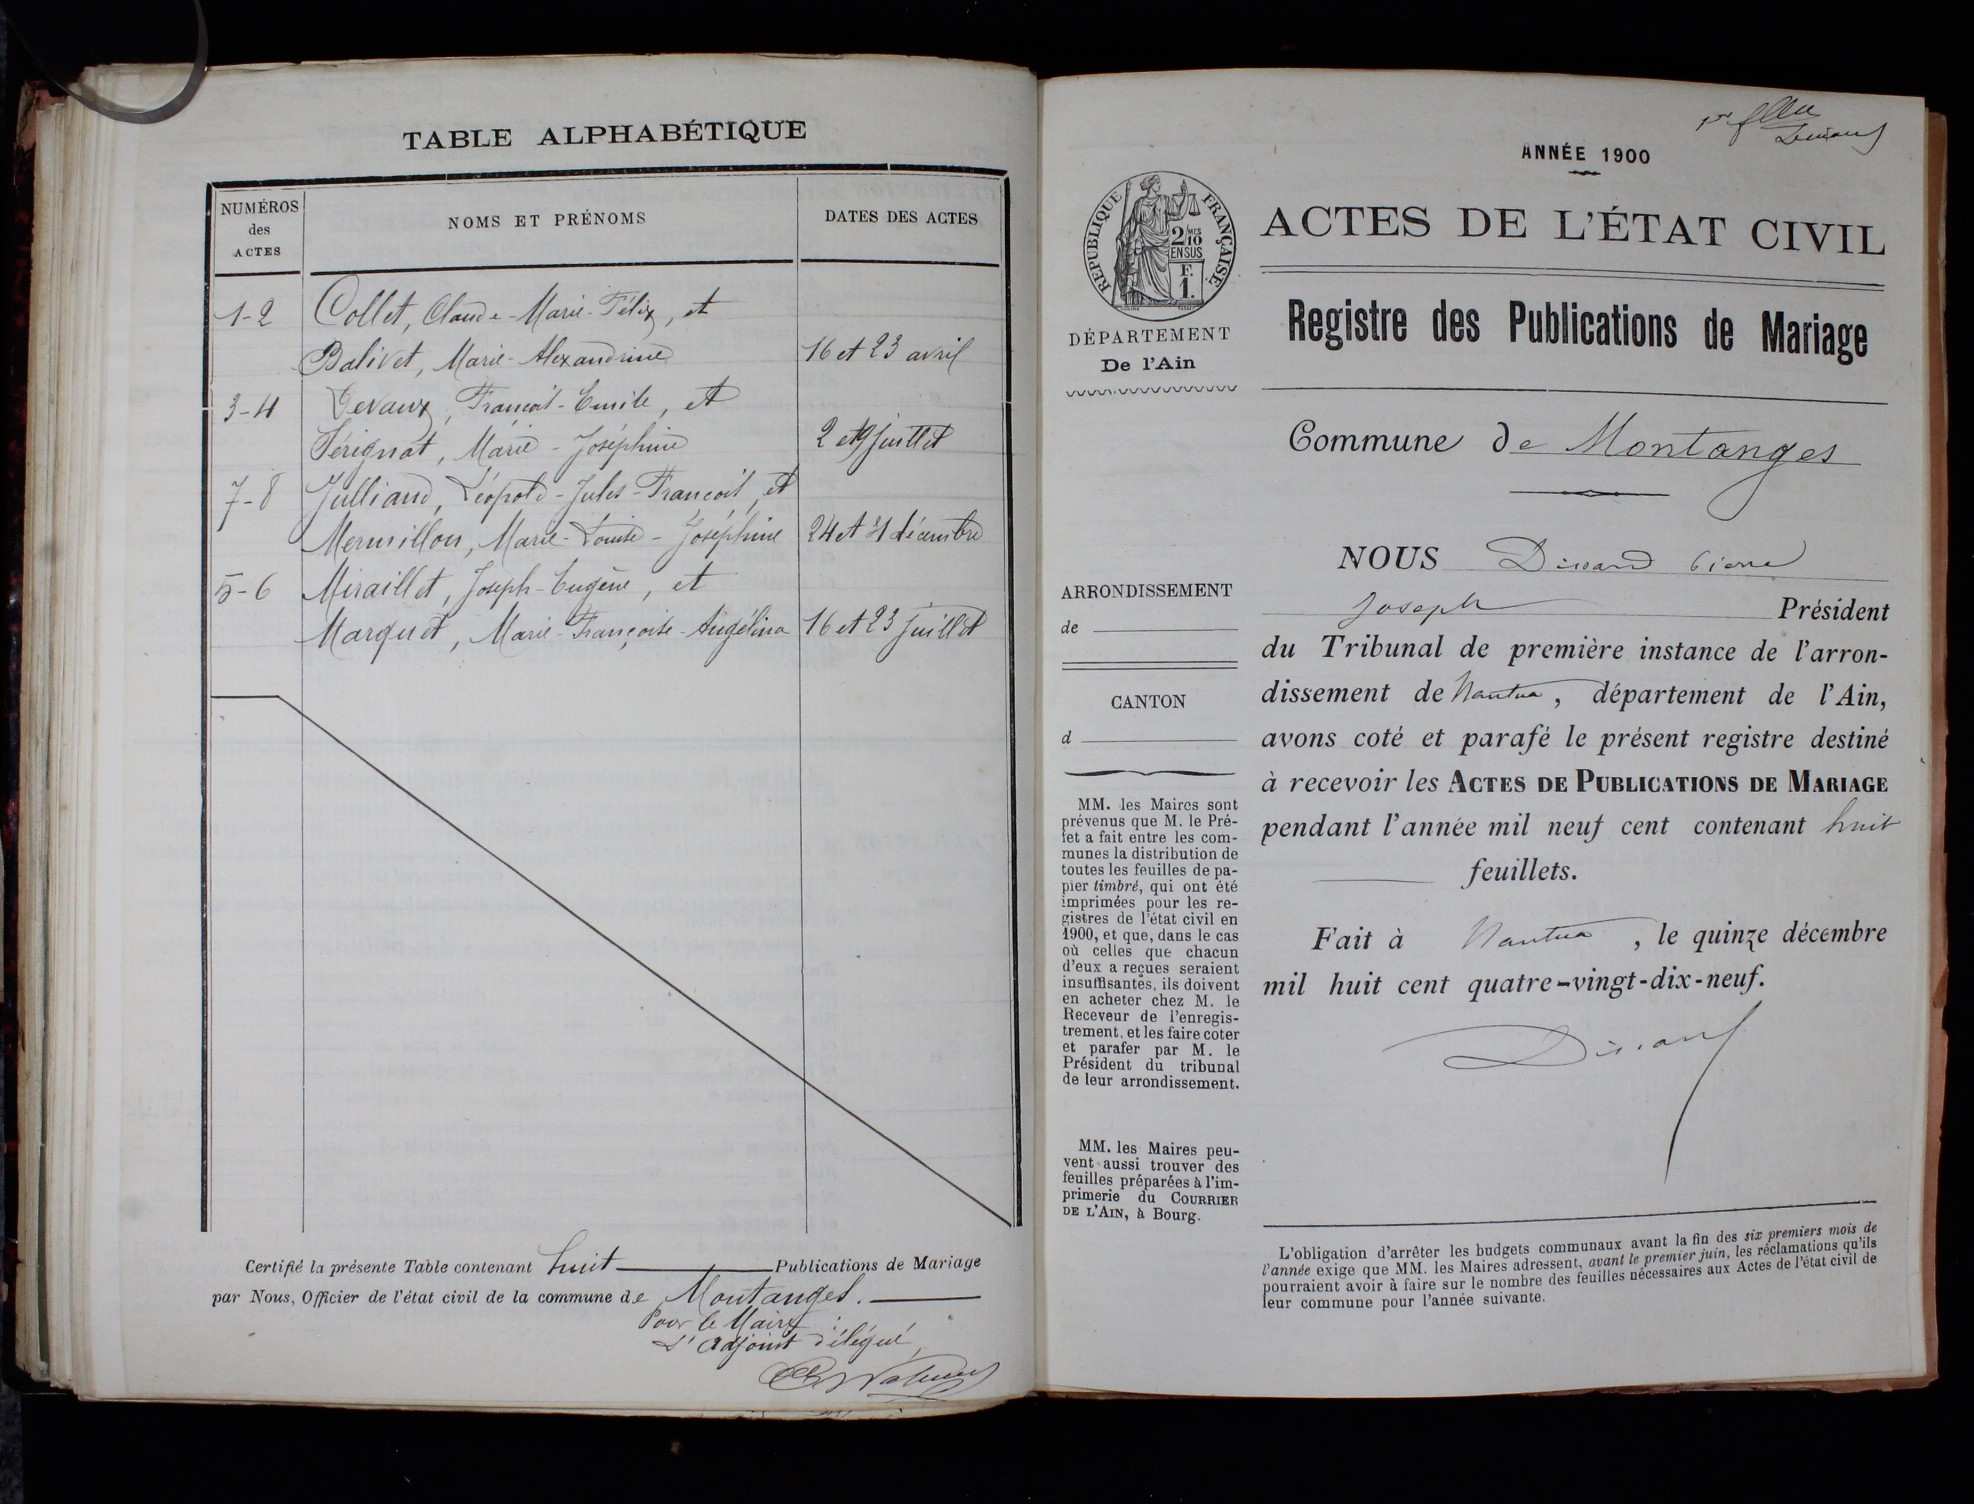 TABLE ALPHABÉTIQUE
NUMÉROS
des
ACTES
NOMS ET PRÉNOMS
DATES DES ACTES
1-2 Collet, Claude-Marie-Félix, et
Balivet, Marie-Alexandrine 16 et 23 avril
3-4 Devaux, François-Emile, et
Sérignat, Marie-Joséphine 2 et 9 juillet
7-8 Julliand, Léopold-Jules-François, et
Mermillon, Marie-Louise-Joséphine 24 et 31 décembre
5-6 Miraillet, Joseph-Eugène, et
Marquet, Marie-Françoise-Angélina 16 et 23 juillet
Certifié la présente Table contenant huit Publications de Mariage
par Nous, Officier de l'état civil de la commune de Montanges.
Pour le Maire :
L'adjoint délégué,
1er
ANNÉE 1900
RÉPUBLIQUE FRANÇAISE
2/10 MES
EN SUS
F.
1.
DÉPARTEMENT
De l'Ain
ACTES DE L'ÉTAT CIVIL
Registre des Publications de Mariage
Commune de Montanges
ARRONDISSEMENT
de
CANTON
d
MM. les Maires sont
prévenus que M. le Pré-
fet a fait entre les com-
munes la distribution de
toutes les feuilles de pa-
pier timbré, qui ont été
imprimées pour les re-
gistres de l'état civil en
1900, et que, dans le cas
où celles que chacun
d'eux a reçues seraient
insuffisantes, ils doivent
en acheter chez M. le
Receveur de l'enregis-
trement, et les faire coter
et parafer par M. le
Président du tribunal
de leur arrondissement.
MM. les Maires peu-
vent aussi trouver des
feuilles préparées à l'im-
primerie du COURRIER
DE L'AIN, à Bourg.
NOUS Dissard Pierre
Joseph Président
du Tribunal de première instance de l'arron-
dissement de Nantua, département de l'Ain,
avons coté et parafé le présent registre destiné
à recevoir les ACTES DE PUBLICATIONS DE MARIAGE
pendant l'année mil neuf cent contenant huit
feuillets.
Fait à Nantua, le quinze décembre
mil huit cent quatre-vingt-dix-neuf.
Dissard
L'obligation d'arrêter les budgets communaux avant la fin des six premiers mois de
l'année exige que MM. les Maires adressent, avant le premier juin, les réclamations qu'ils
pourraient avoir à faire sur le nombre des feuilles nécessaires aux Actes de l'état civil de
leur commune pour l'année suivante.